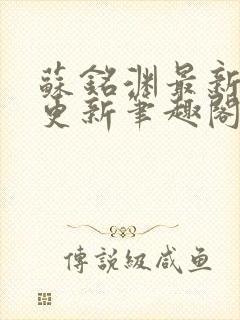 蘇銘渊最新
更新筆趣閣
傳說級咸鱼